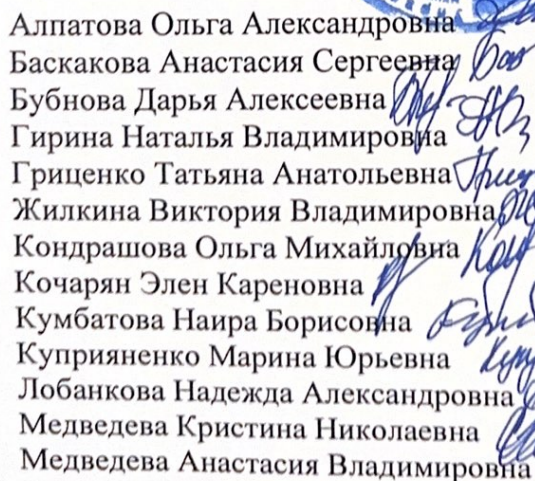 Алпатова Ольга Александровна
Баскакова Анастасия Сергеевна
Бубнова Дарья Алексеевна
Гирина Наталья Владимировна
Гриценко Татьяна Анатольевна
Жилкина Виктория Владимировна
Кондрашова Ольга Михайловна
Кочарян Элен Кареновна
Кумбатова Наира Борисовна
Куприяненко Марина Юрьевна
Лобанкова Надежда Александровна
Медведева Кристина Николаевна
Медведева Анастасия Владимировна